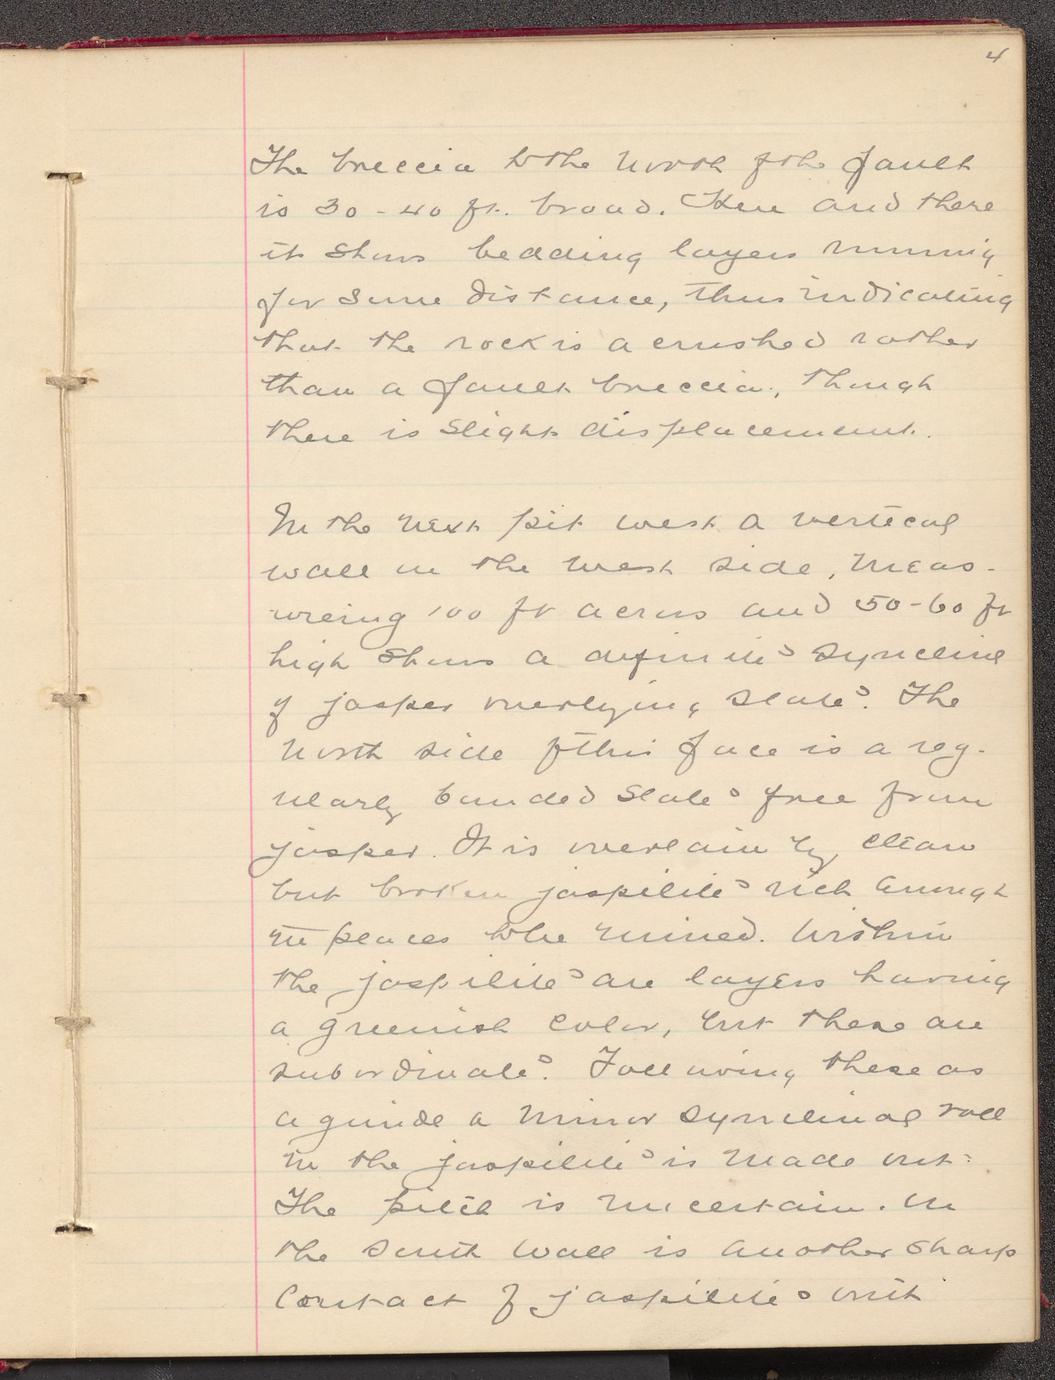 4
The breccia to the North of the fault
is 30-40 ft. broad. Here and there
it shows bedding layers running
for some distance, thus indicating
that the rock is a crushed rather
than a fault breccia, though
there is slight displacement.
In the next pit west a vertical
wall in the west side, meas-
ureing 100 ft across and 50-60 ft
high shows a definite syncline
of jasper overlying slate. The
North side of this face is a reg-
ularly banded slate free from
jasper. It is overlain by clean
but broken jaspilite rich enough
in places to be mined. Within
the jaspilite are layers having
a greenish color, but these are
subordinate. Following these as
a guide a minor synclinal roll
in the jaspilite is made out.
The pitch is uncertain. In
the south wall is another sharp
Contact of jaspilite with